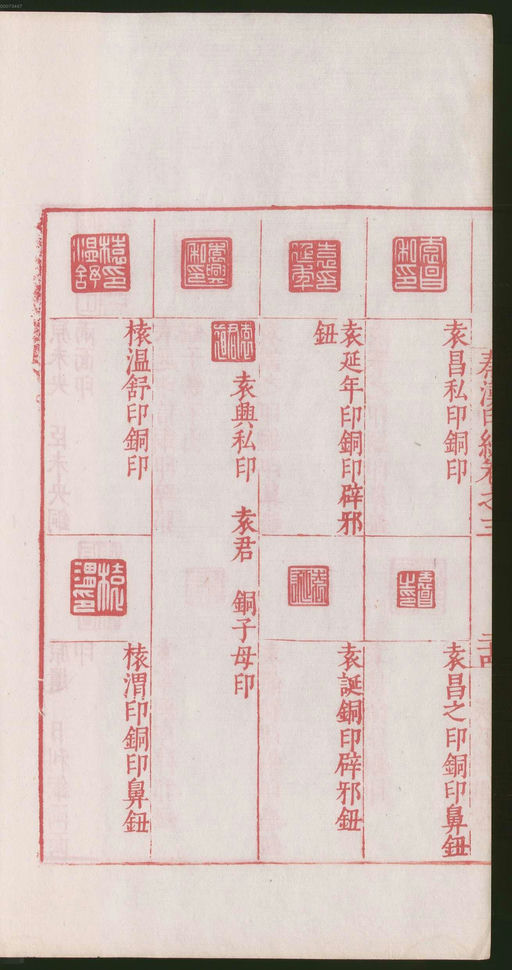 秦漢印統卷之三
袁昌私印銅印
袁昌之印銅印鼻鈕
袁延年印銅印辟邪
鈕
袁誕銅印辟邪鈕
袁興私印　袁君　銅子母印
榬温舒印銅印
榬渭印銅印鼻鈕